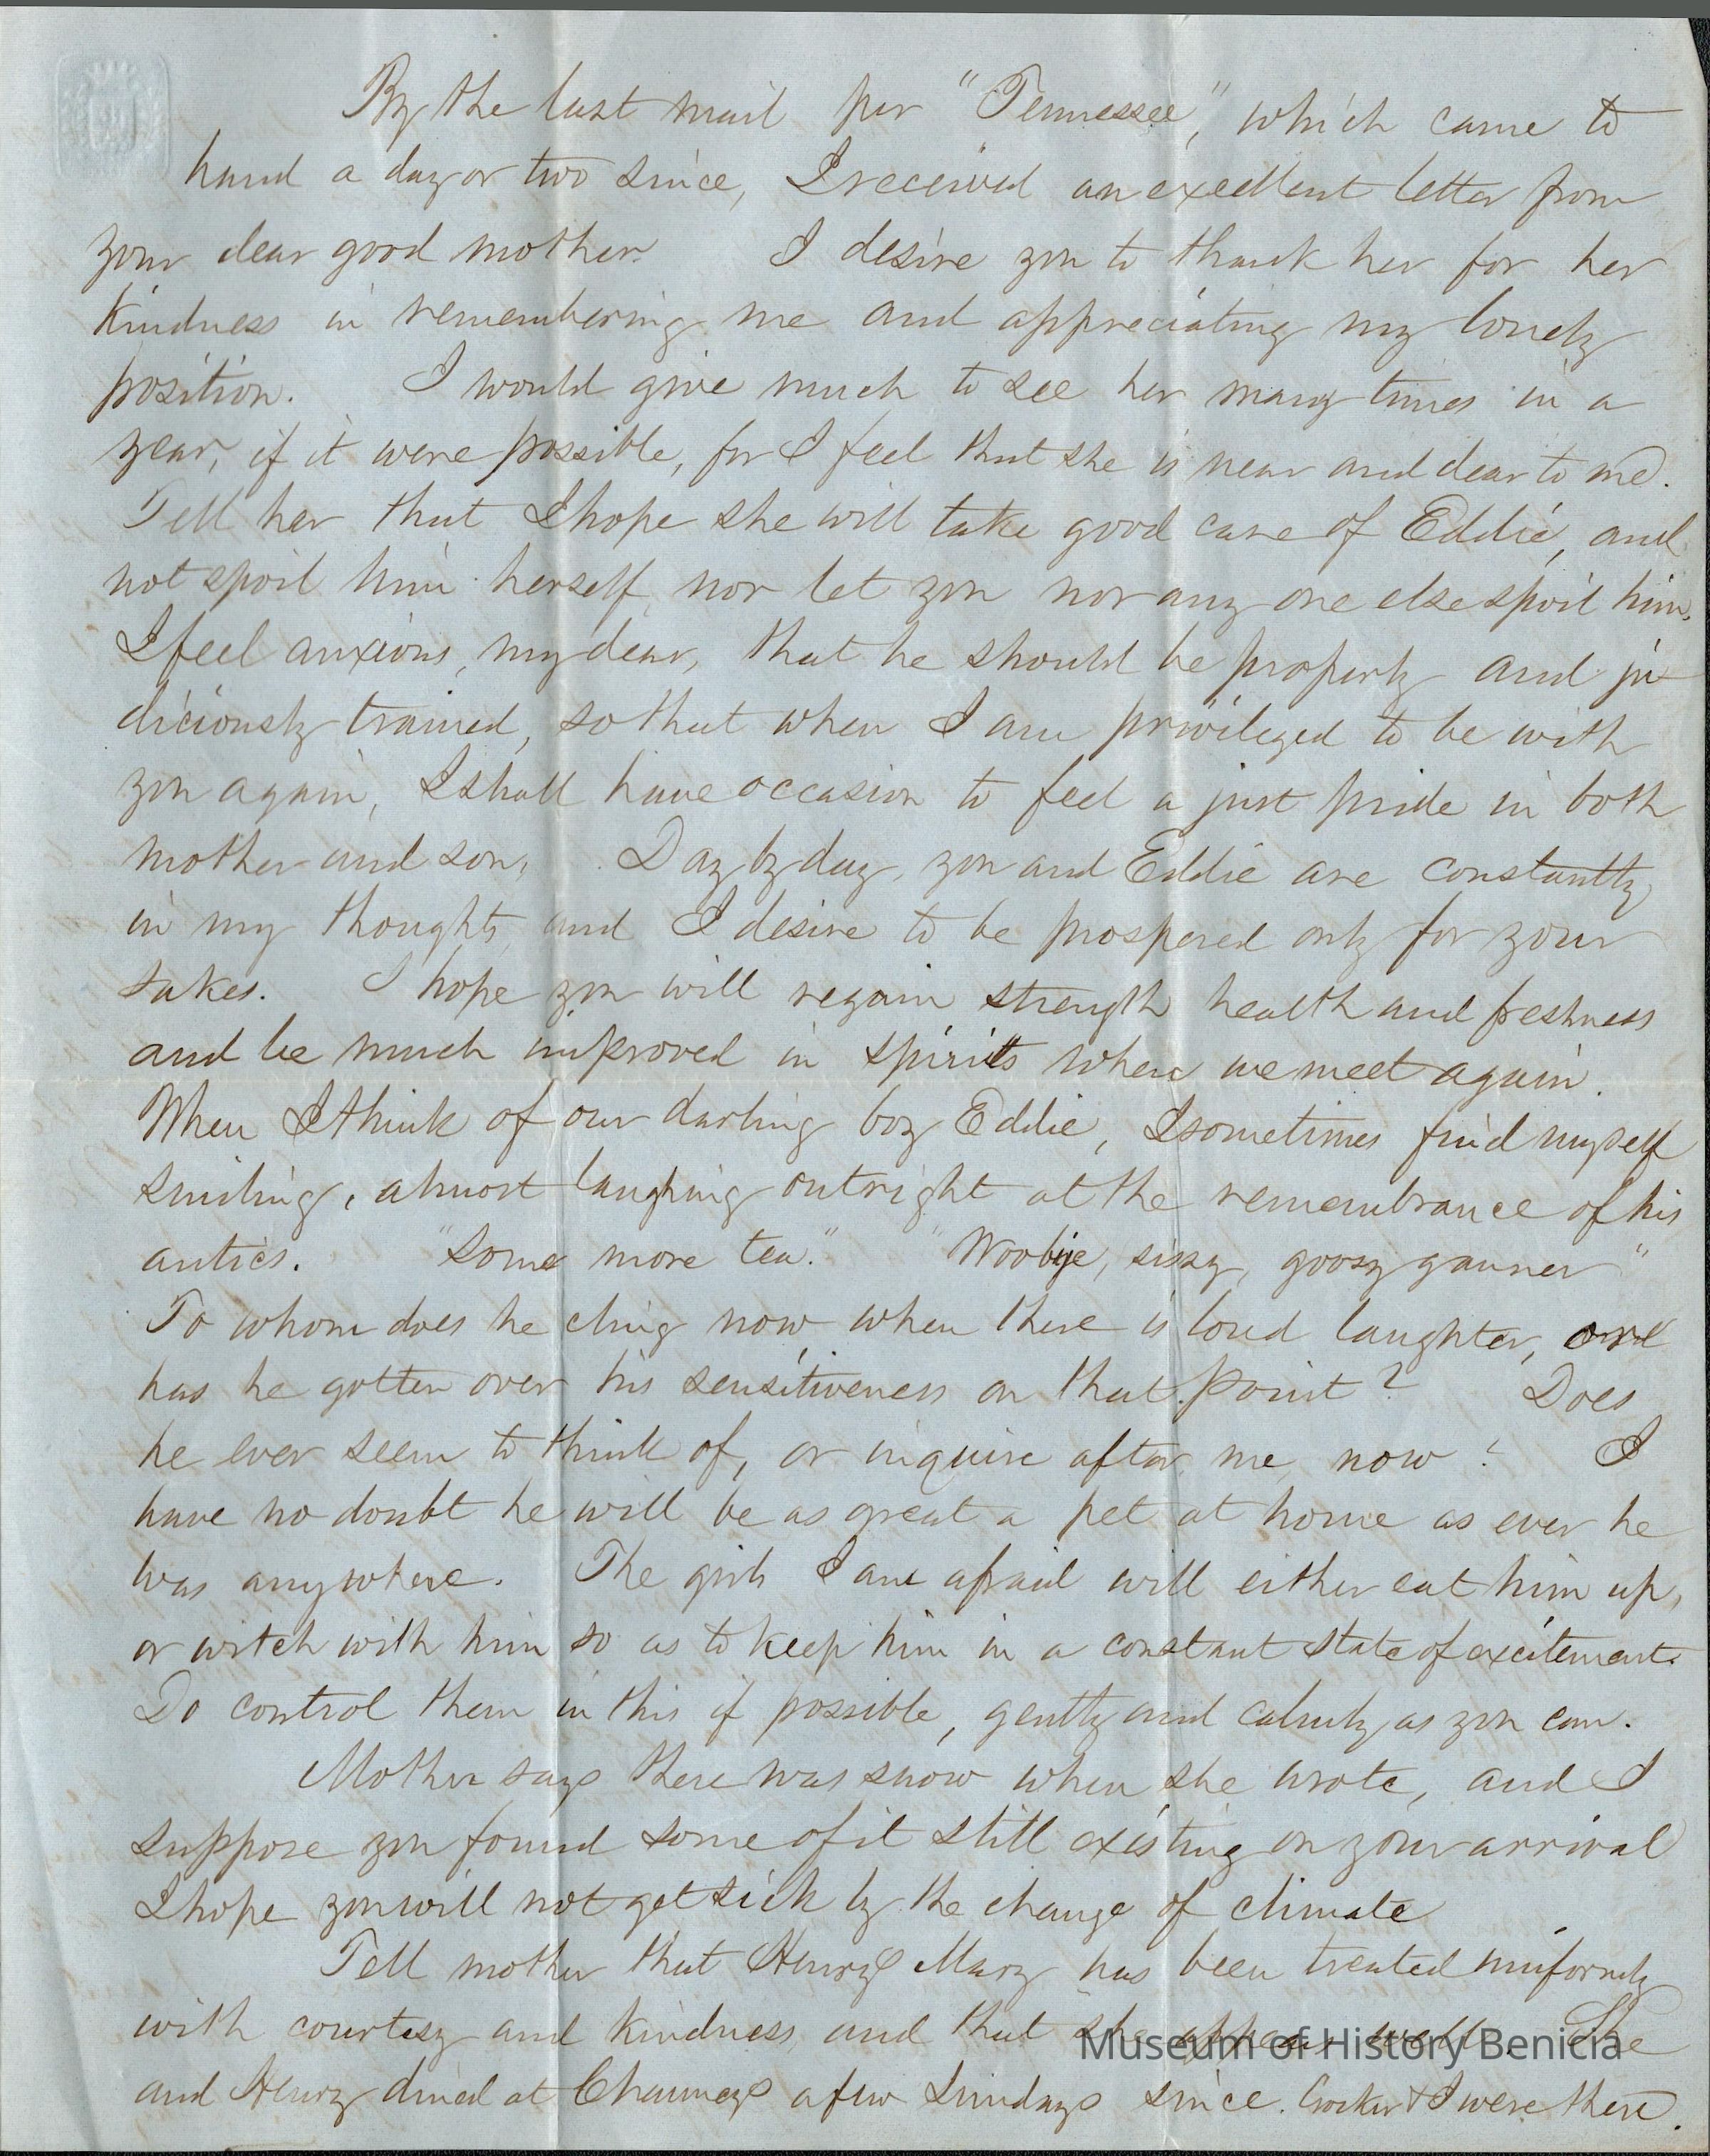 By the last mail per "Tennessee", which came to
hand a day or two since, I received an excellent letter from
your dear good mother. I desire you to thank her for her
kindness in remembering me and appreciating my lonely
position. I would give much to see her many times in a
year, if it were possible, for I feel that she is near and dear to me.
Tell her that I hope she will take good care of Eddie, and
not spoil him herself, nor let you nor any one else spoil him.
I feel anxious, my dear, that he should be properly and ju-
diciously trained, so that when I am privileged to be with
you again, I shall have occasion to feel a just pride in both
mother and son. Day by day, you and Eddie are constantly
in my thoughts, and I desire to be prospered only for your
sakes. I hope you will regain strength health and freshness
and be much improved in spirits when we meet again.
When I think of our darling boy Eddie, I sometimes find myself
smiling, almost laughing outright at the remembrance of his
antics. "Some more tea." "Woobye, sissy, goosy gauner"
To whom does he cling now when there is loud laughter, and
has he gotten over his sensitiveness on that point? Does
he ever seem to think of, or inquire after me now? I
have no doubt he will be as great a pet at home as ever he
was anywhere. The girls I am afraid will either eat him up,
or witch with him so as to keep him in a constant state of excitement.
Do control them in this if possible, gently and calmly as you can.
Mother says there was snow when she wrote, and I
suppose you found some of it still existing on your arrival
I hope you will not get sick by the change of climate
Tell mother that Henry's Mary has been treated uniformly
with courtesy and kindness, and that she appears well. She
and Henry dined at Chauncey's a few Sundays since. Crocker & I were there.
Museum of History Benicia